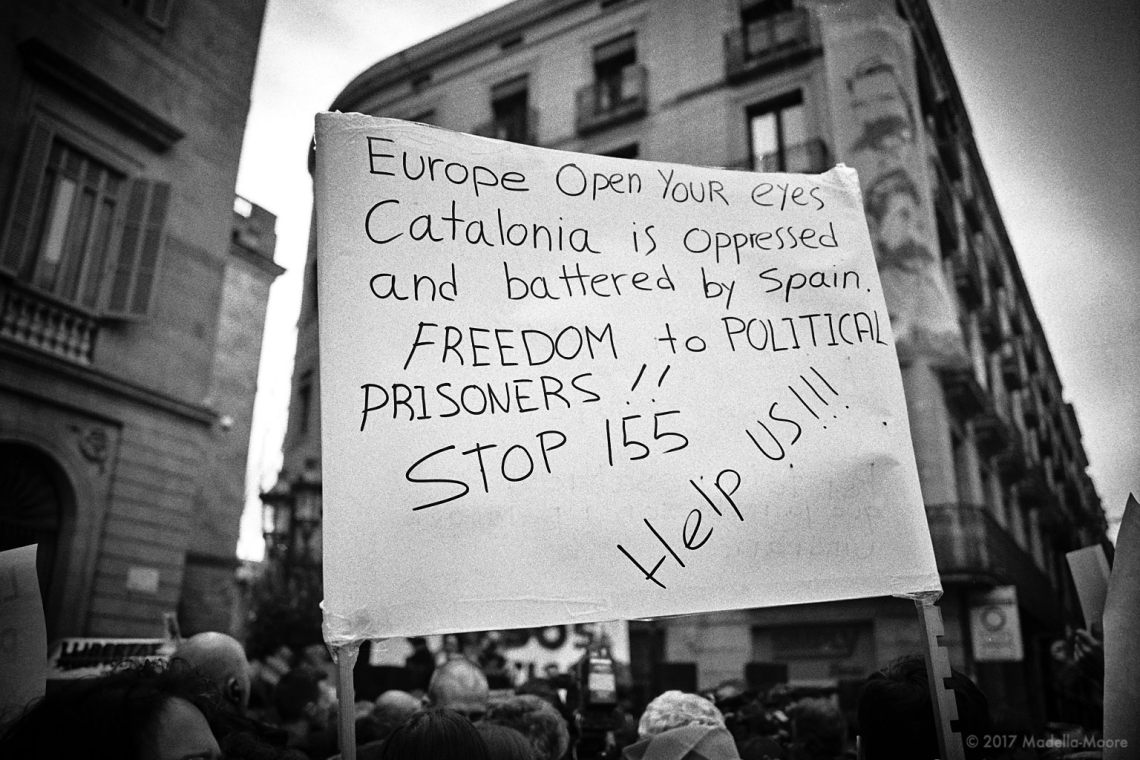 Europe Open YOUR eyes
Catalonia is oppressed
and battered by Spain.
FREEDOM to POLITICAL
PRISONERS !!
STOP 155
Help US!!!
LLIBERTAT
DOS
© 2017 Madella-Moore